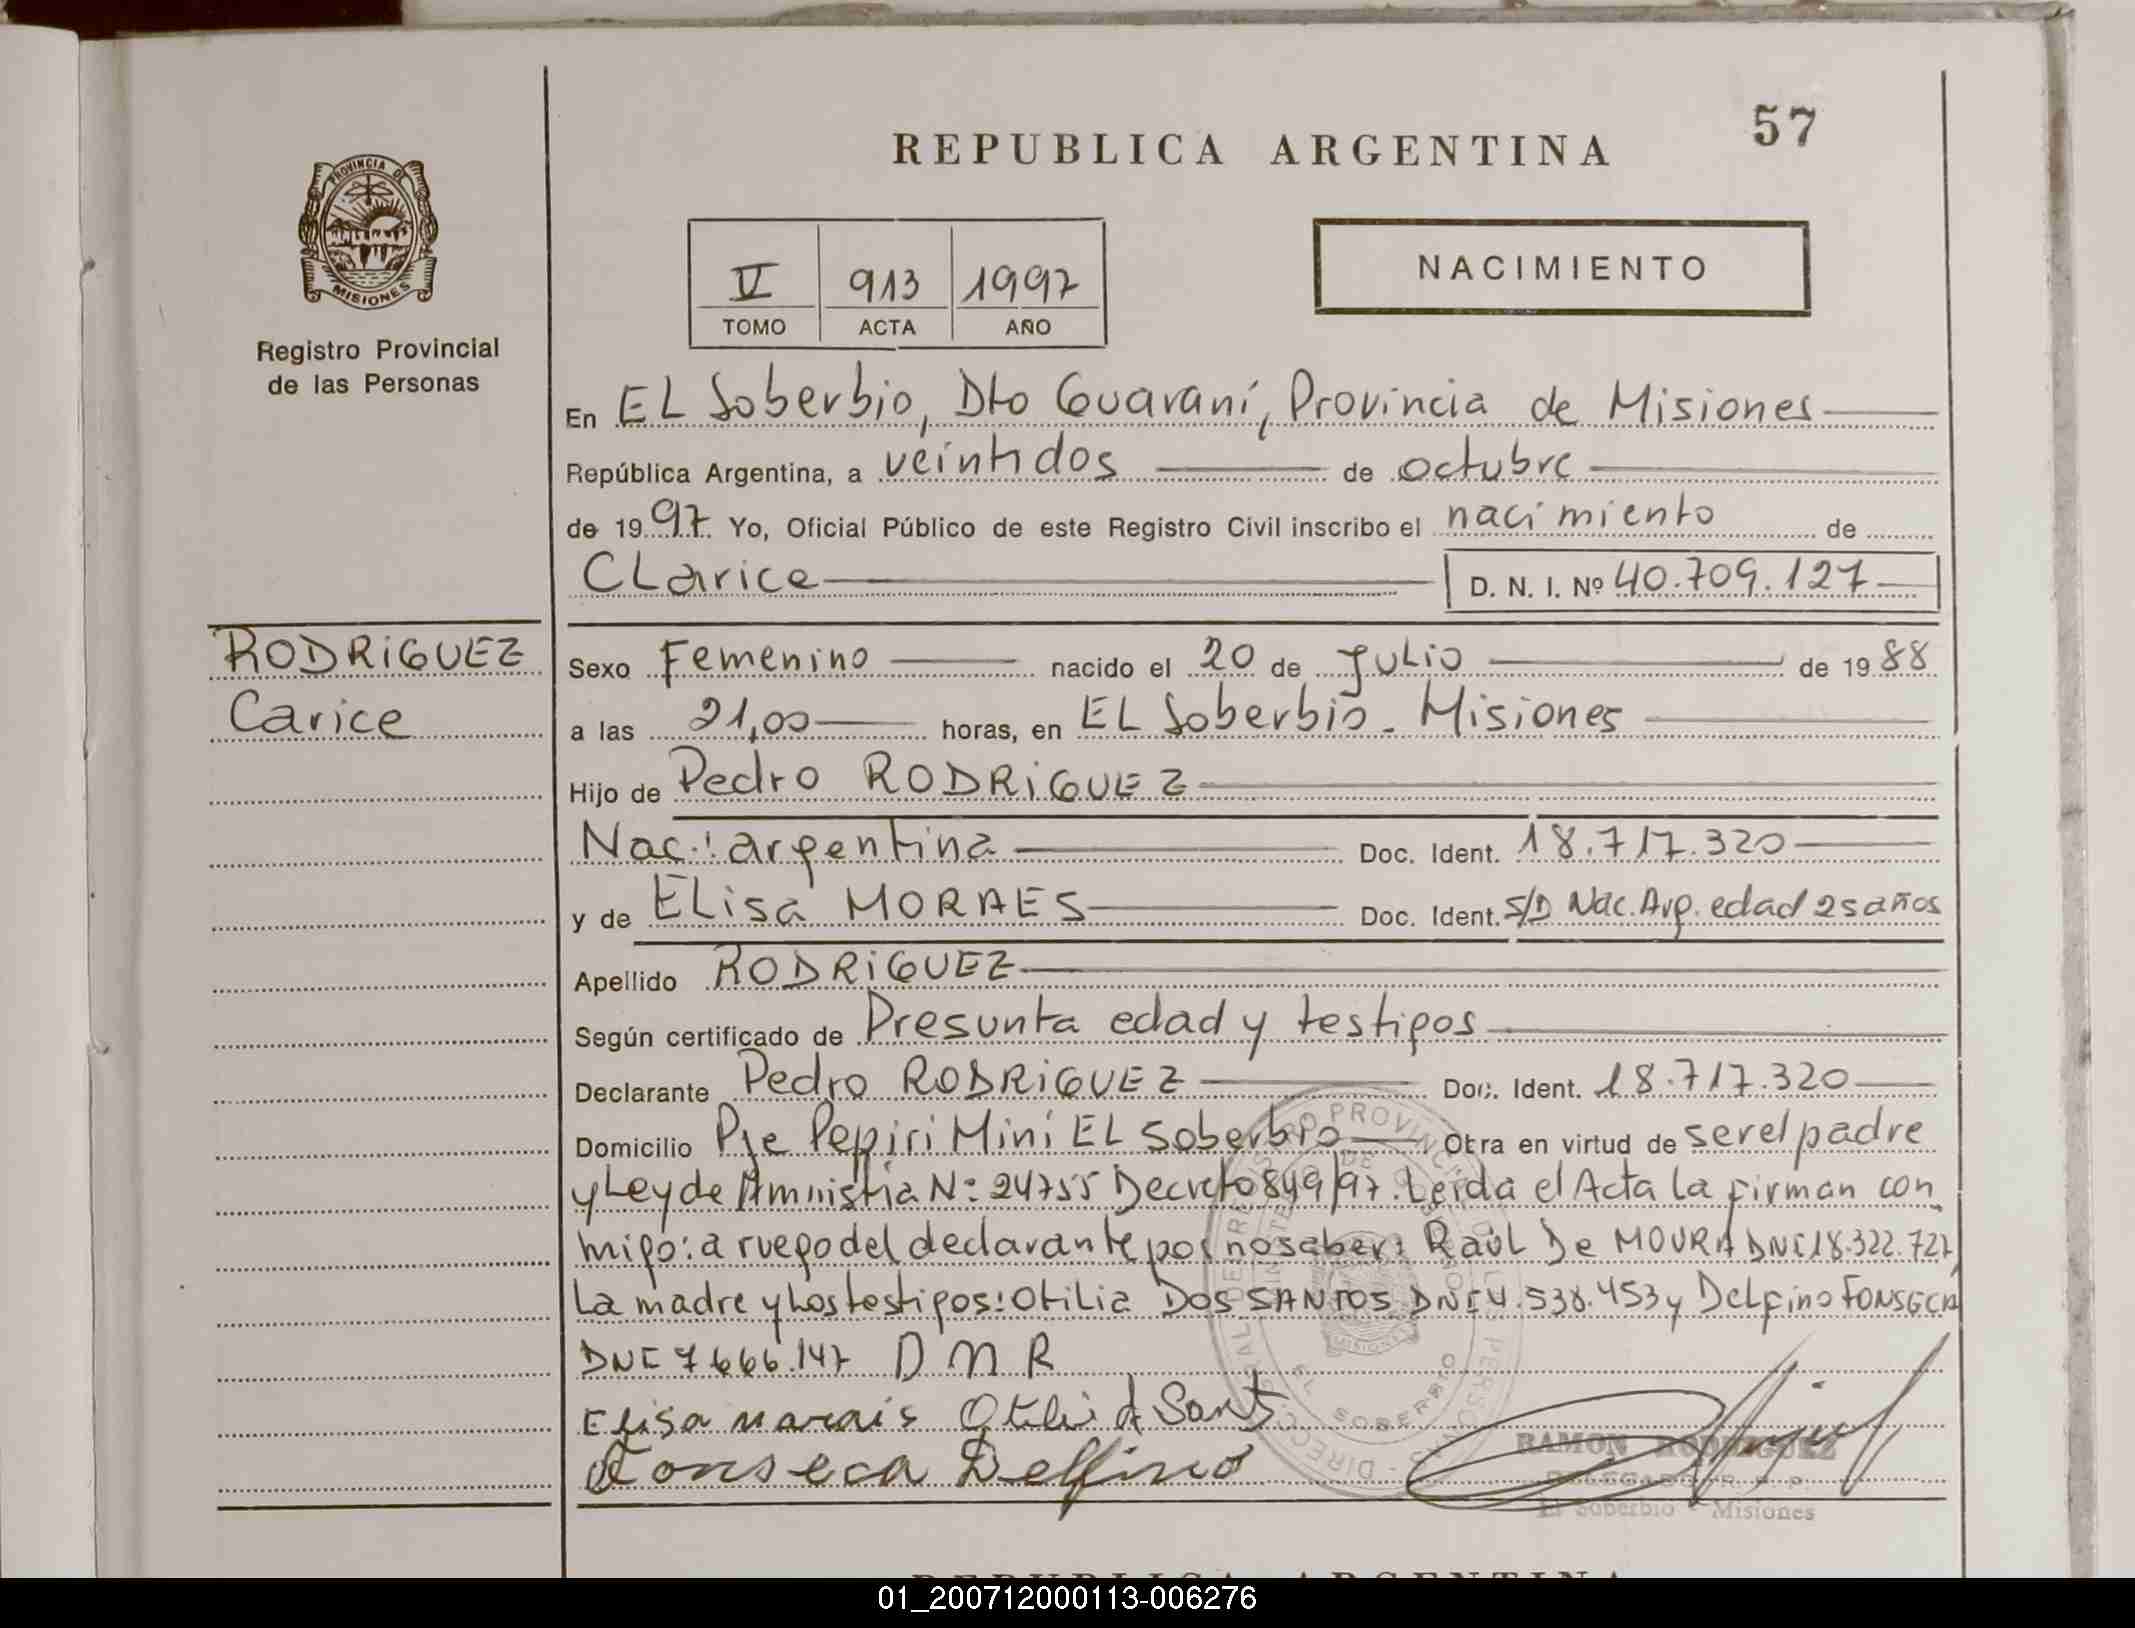 57
REPUBLICA ARGENTINA
PROVINCIA DE
MISIONES
Registro Provincial
de las Personas
V 913 1997
TOMO ACTA AÑO
NACIMIENTO
En EL Soberbio, Dto Guaraní, Provincia de Misiones
República Argentina, a veintidos de octubre
de 1997. Yo, Oficial Público de este Registro Civil inscribo el nacimiento de
CLarice D. N. I. Nº 40.709.127
RODRiGUEZ
Carice
Sexo Femenino nacido el 20 de juLio de 1988
a las 21,00 horas, en EL Soberbio - Misiones
Hijo de Pedro RODRiGUEZ
Nac: argentina Doc. Ident. 18.717.320
y de ELisa MORAES Doc. Ident. S/D Nac. Arg. edad 25 años
Apellido RODRiGUEZ
Según certificado de Presunta edad y testigos
Declarante Pedro RODRiGUEZ Doc. Ident. 18.717.320
Domicilio Pje Pepiri Miní EL Soberbio Obra en virtud de ser el padre
y Ley de Amnistia N: 24755 Decreto 849/97. Leida el Acta La firman con
migo: a ruego del declarante por no saber: Raúl De MOURA DNI 18.322.727,
La madre y Los testigos: OtiLia DOS SANTOS DNI 4.538.453 y DeLfino FONSECA
DNI 7.666.147 D M R
Elisa marais Otili d Sant
Fonseca Delfino
RAMON RODRIGUEZ
DELEGADO R. P. P.
El Soberbio - Misiones
REPUBLICA ARGENTINA
01_200712000113-006276